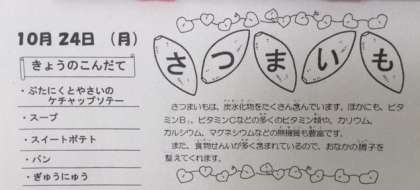 10月24日 (月)
きょうのこんだて
・ぶたにくとやさいの
ケチャップソテー
・スープ
・スイートポテト
・パン
・ぎゅうにゅう
さつまいも
さつまいもは、炭水化物をたくさん含んでいます。ほかにも、ビタ
ミンB₁、ビタミンCなどの多くのビタミン類や、カリウム、
カルシウム、マグネシウムなどの無機質も豊富です。
また、食物せんいが多く含まれているので、おなかの調子を
整えてくれます。